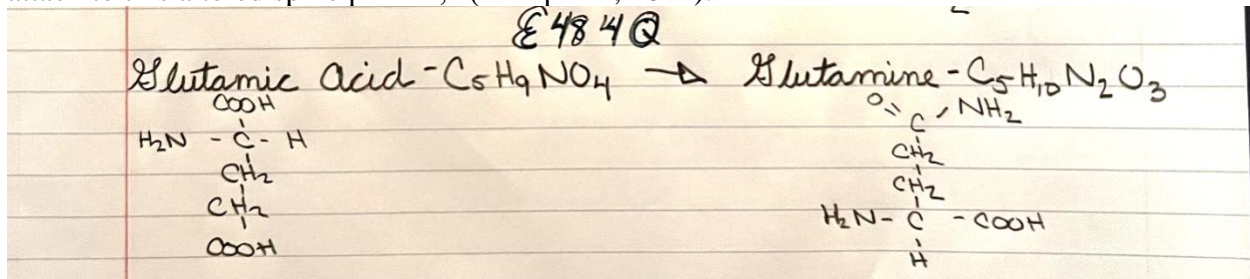 E484Q
Glutamic Acid - C5H9NO4 → Glutamine - C5H10N2O3
COOH
H2N - C - H
CH2
CH2
COOH
O = C - NH2
CH2
CH2
H2N - C - COOH
H